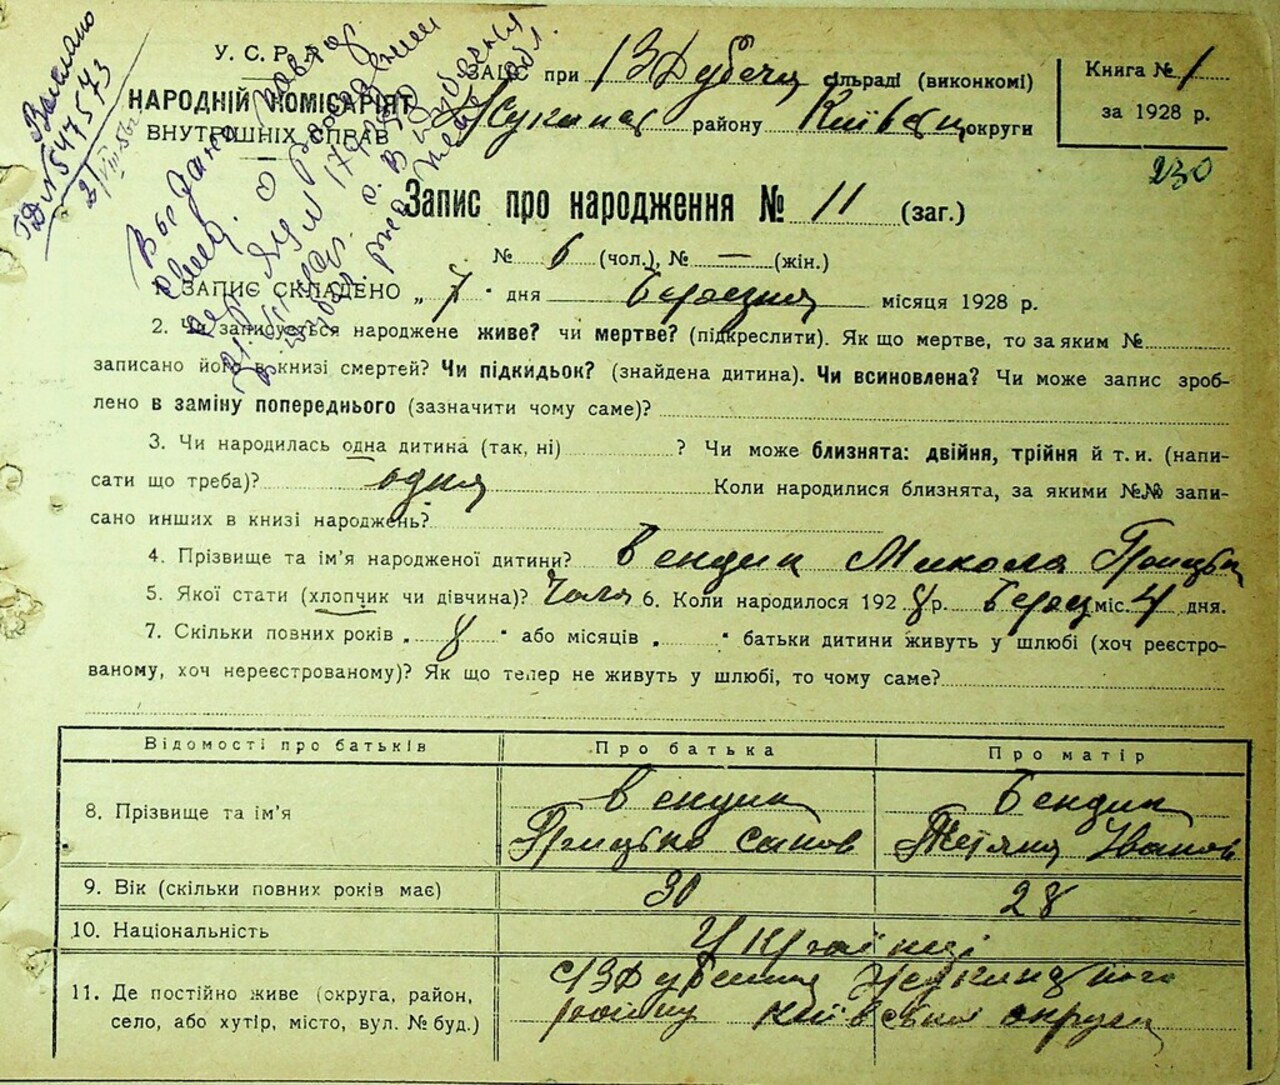 У. С. Р. Р.
НАРОДНІЙ КОМІСАРІЯТ
ВНУТРІШНІХ СПРАВ
Выслано
547573
Выдано повтор
о рождении
ЗАПИС при сільраді (виконкомі)
району Київськ округи
Книга № 1
за 1928 р.
230
Запис про народження № 11 (заг.)
№ 6 (чол.), № — (жін.)
1. ЗАПИС СКЛАДЕНО „ 7 " дня Березня місяця 1928 р.
2. Чи записується народжене живе? чи мертве? (підкреслити). Як що мертве, то за яким №
записано його в книзі смертей? Чи підкидьок? (знайдена дитина). Чи всиновлена? Чи може запис зроб-
лено в заміну попереднього (зазначити чому саме)?
3. Чи народилась одна дитина (так, ні) ? Чи може близнята: двійня, трійня й т. и. (напи-
сати що треба)? одна Коли народилися близнята, за якими №№ запи-
сано инших в книзі народжень?
4. Прізвище та ім'я народженої дитини? Бендик Микола Грицьк
5. Якої стати (хлопчик чи дівчина)? Чолв 6. Коли народилося 192 8 р. Берез міс. 4 дня.
7. Скільки повних років „ 8 " або місяців „ " батьки дитини живуть у шлюбі (хоч реєстро-
ваному, хоч нереєстрованому)? Як що тепер не живуть у шлюбі, то чому саме?
Відомості про батьків
Про батька
Про матір
8. Прізвище та ім'я
Бендик
Грицько
Бендик
Тетяна Іванов
9. Вік (скільки повних років має)
30
28
10. Національність
Українці
11. Де постійно живе (округа, район,
село, або хутір, місто, вул. № буд.)
району Київської округи